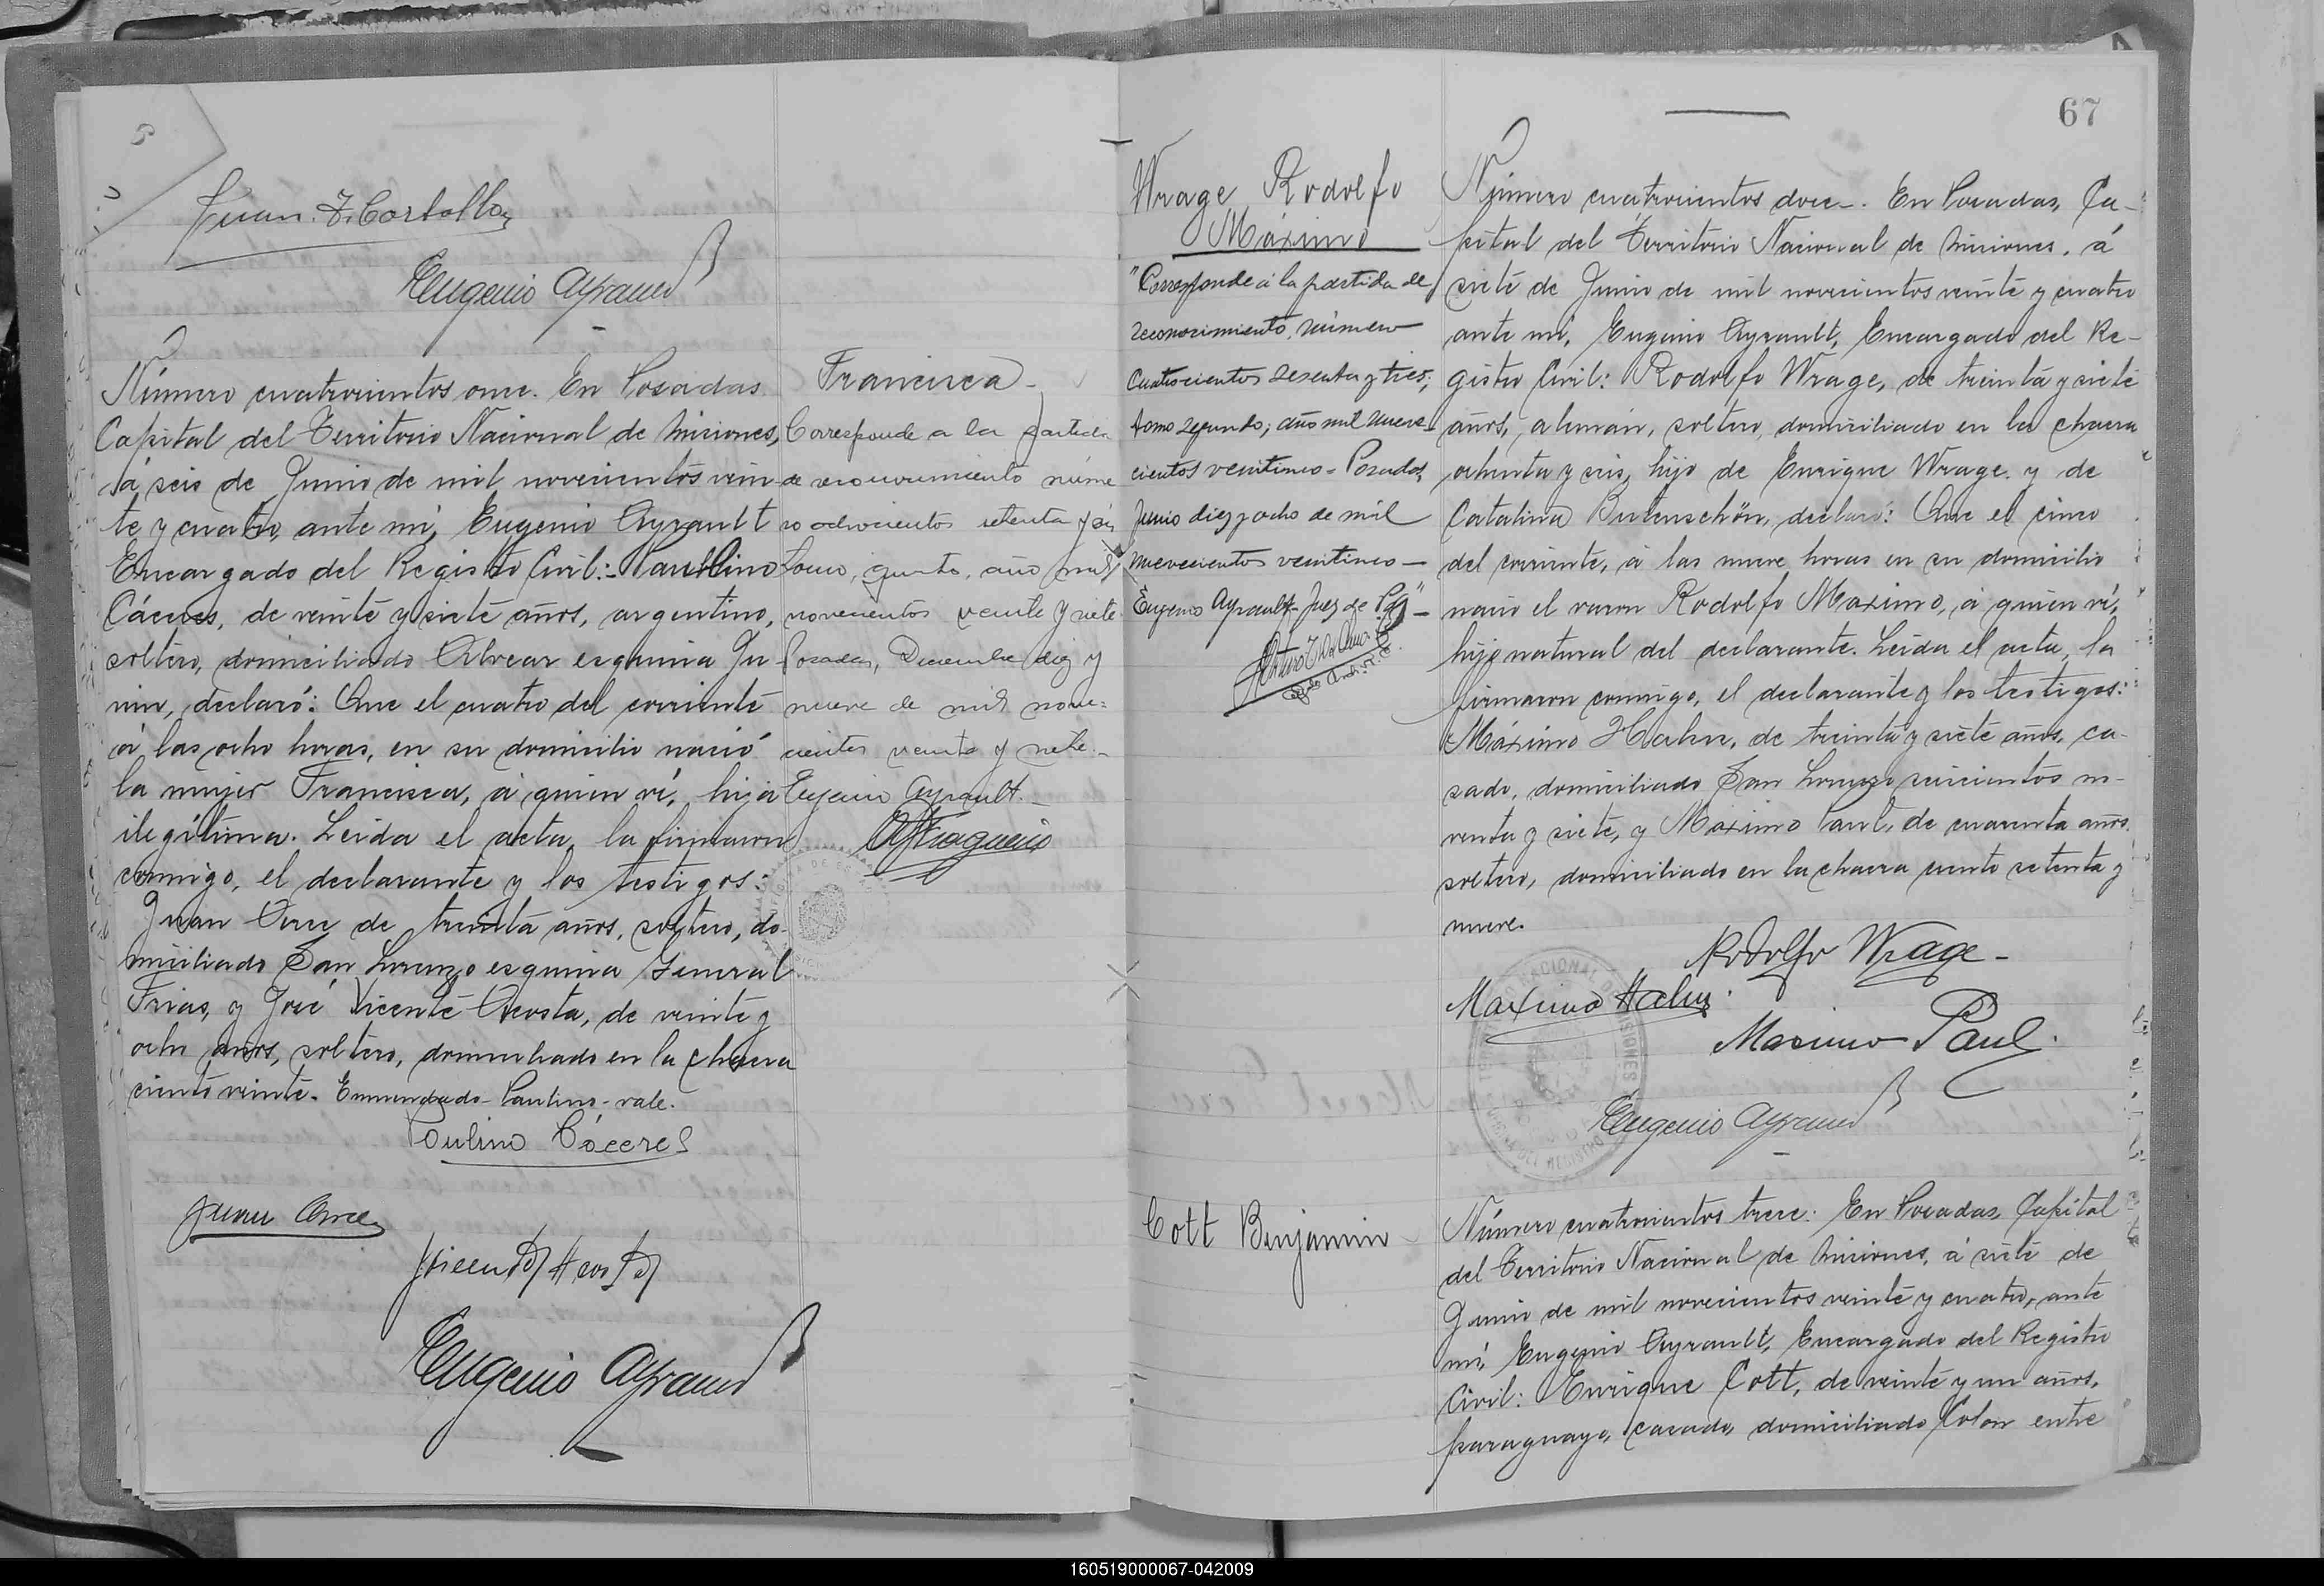 Juan
Eugenio Ayrault
Número cuatrocientos once. En Posadas
Capital del Territorio Nacional de Misiones,
á seis de Junio de mil novecientos vein-
te y cuatro, ante mí, Eugenio Ayrault
Encargado del Registro Civil:- Paulino
Cáceres, de veinte y siete años, argentino,
soltero, domiciliado Alvear esquina Ju-
nin, declaró: Que el cuatro del corriente
á las ocho horas, en su domicilio nació
la mujer Francisca, á quien ví, hija
ilegítima. Leida el acta, la firmaron
conmigo, el declarante y los testigos:
Juan Arce de treinta años, soltero, do-
miciliado San Lorenzo esquina General
Frias, y José Vicente Acosta, de veinte y
ocho años, soltero, domiciliado en la chacra
ciento veinte. Enmendado-Paulino-vale.
Paulino Cáceres
Juan Arce
Eugenio Ayrault
Francisca-
Corresponde a la partida
de reconocimiento núme
ro ochocientos setenta y seis
tomo, quinto, año mil
novecientos veinte y siete.
Posadas, Diciembre diez y
nueve de mil nove=
cientos veinte y siete.-
Eugenio Ayrault.-
67
Wrage Rodolfo
Máximo
"Corresponde á la partida de
reconocimiento, número
cuatrocientos sesenta y tres;
tomo segundo; año mil nueve-
cientos veinticinco-Posadas,
Junio diez y ocho de mil
nuevecientos veinticinco-
Eugenio Ayrault-Juez de Paz"-
Número cuatrocientos doce-. En Posadas, Ca-
pital del Territorio Nacional de Misiones, á
siete de Junio de mil novecientos veinte y cuatro
ante mí, Eugenio Ayrault, Encargado del Re-
gistro Civil: Rodolfo Wrage, de treinta y siete
años, alemán, soltero, domiciliado en la chacra
ochenta y seis, hijo de Enrique Wrage y de
Catalina Butenschön, declaró: Que el cinco
del corriente, á las nueve horas en su domicilio
nació el varon Rodolfo Maximo, á quien ví,
hijo natural del declarante. Leida el acta, la
firmaron conmigo, el declarante y los testigos:
Máximo Hahn, de treinta y siete años, ca-
sado, domiciliado San Lorenzo seiscientos no-
venta y siete, y Maximo Paul, de cuarenta años,
soltero, domiciliado en la chacra ciento setenta y
nueve.
Rodolfo Wrage-
Maximo Hahn.
Maximo Paul.
Eugenio Ayrault
Cott Benjamin
Número cuatrocientos trece: En Posadas, Capital
del Territorio Nacional de Misiones, á siete de
Junio de mil novecientos veinte y cuatro, ante
mí, Eugenio Ayrault, Encargado del Registro
Civil: Enrique Cott, de veinte y un años,
paraguayo, casado, domiciliado Colon entre
160519000067-042009